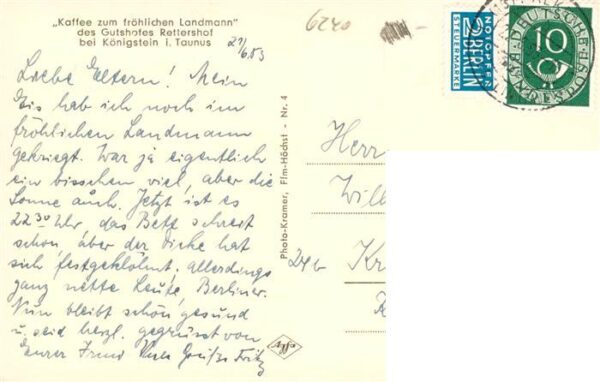 „Kaffee zum fröhlichen Landmann"
des Gutshofes Rettershof
bei Königstein i. Taunus
21/6.53
6240
Liebe Eltern! Mein
Eis hab ich noch im
fröhlichen Landmann
gekriegt. War ja eigentlich
ein bisschen viel, aber die
Sonne auch. Jetzt ist es
22 30 Uhr das Bett schreit
schon aber der Dicke hat
sich festgeklöhnt. allerdings
ganz nette Leute, Berliner.
Nun bleibt schön gesund
u. seid herzl. gegrüsst von
Eurer Irmi
Fritz
Photo-Kramer, Ffm-Höchst - Nr. 4
Agfa
NOTOPFER
2 BERLIN
STEUERMARKE
DEUTSCHE
10
BUNDESPOST
Herr
Will
Kr